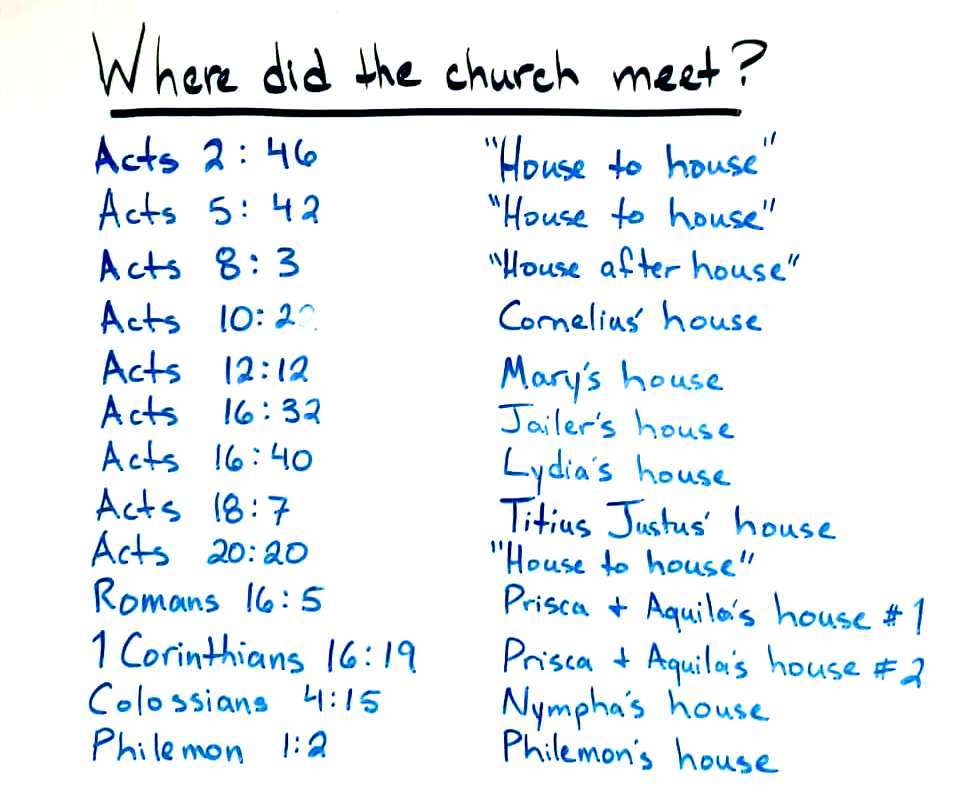 Where did the church meet?
Acts 2:46 "House to house"
Acts 5:42 "House to house"
Acts 8:3 "House after house"
Acts 10:2 Cornelius' house
Acts 12:12 Mary's house
Acts 16:32 Jailer's house
Acts 16:40 Lydia's house
Acts 18:7 Titius Justus' house
Acts 20:20 "House to house"
Romans 16:5 Prisca + Aquila's house #1
1 Corinthians 16:19 Prisca + Aquila's house #2
Colossians 4:15 Nympha's house
Philemon 1:2 Philemon's house